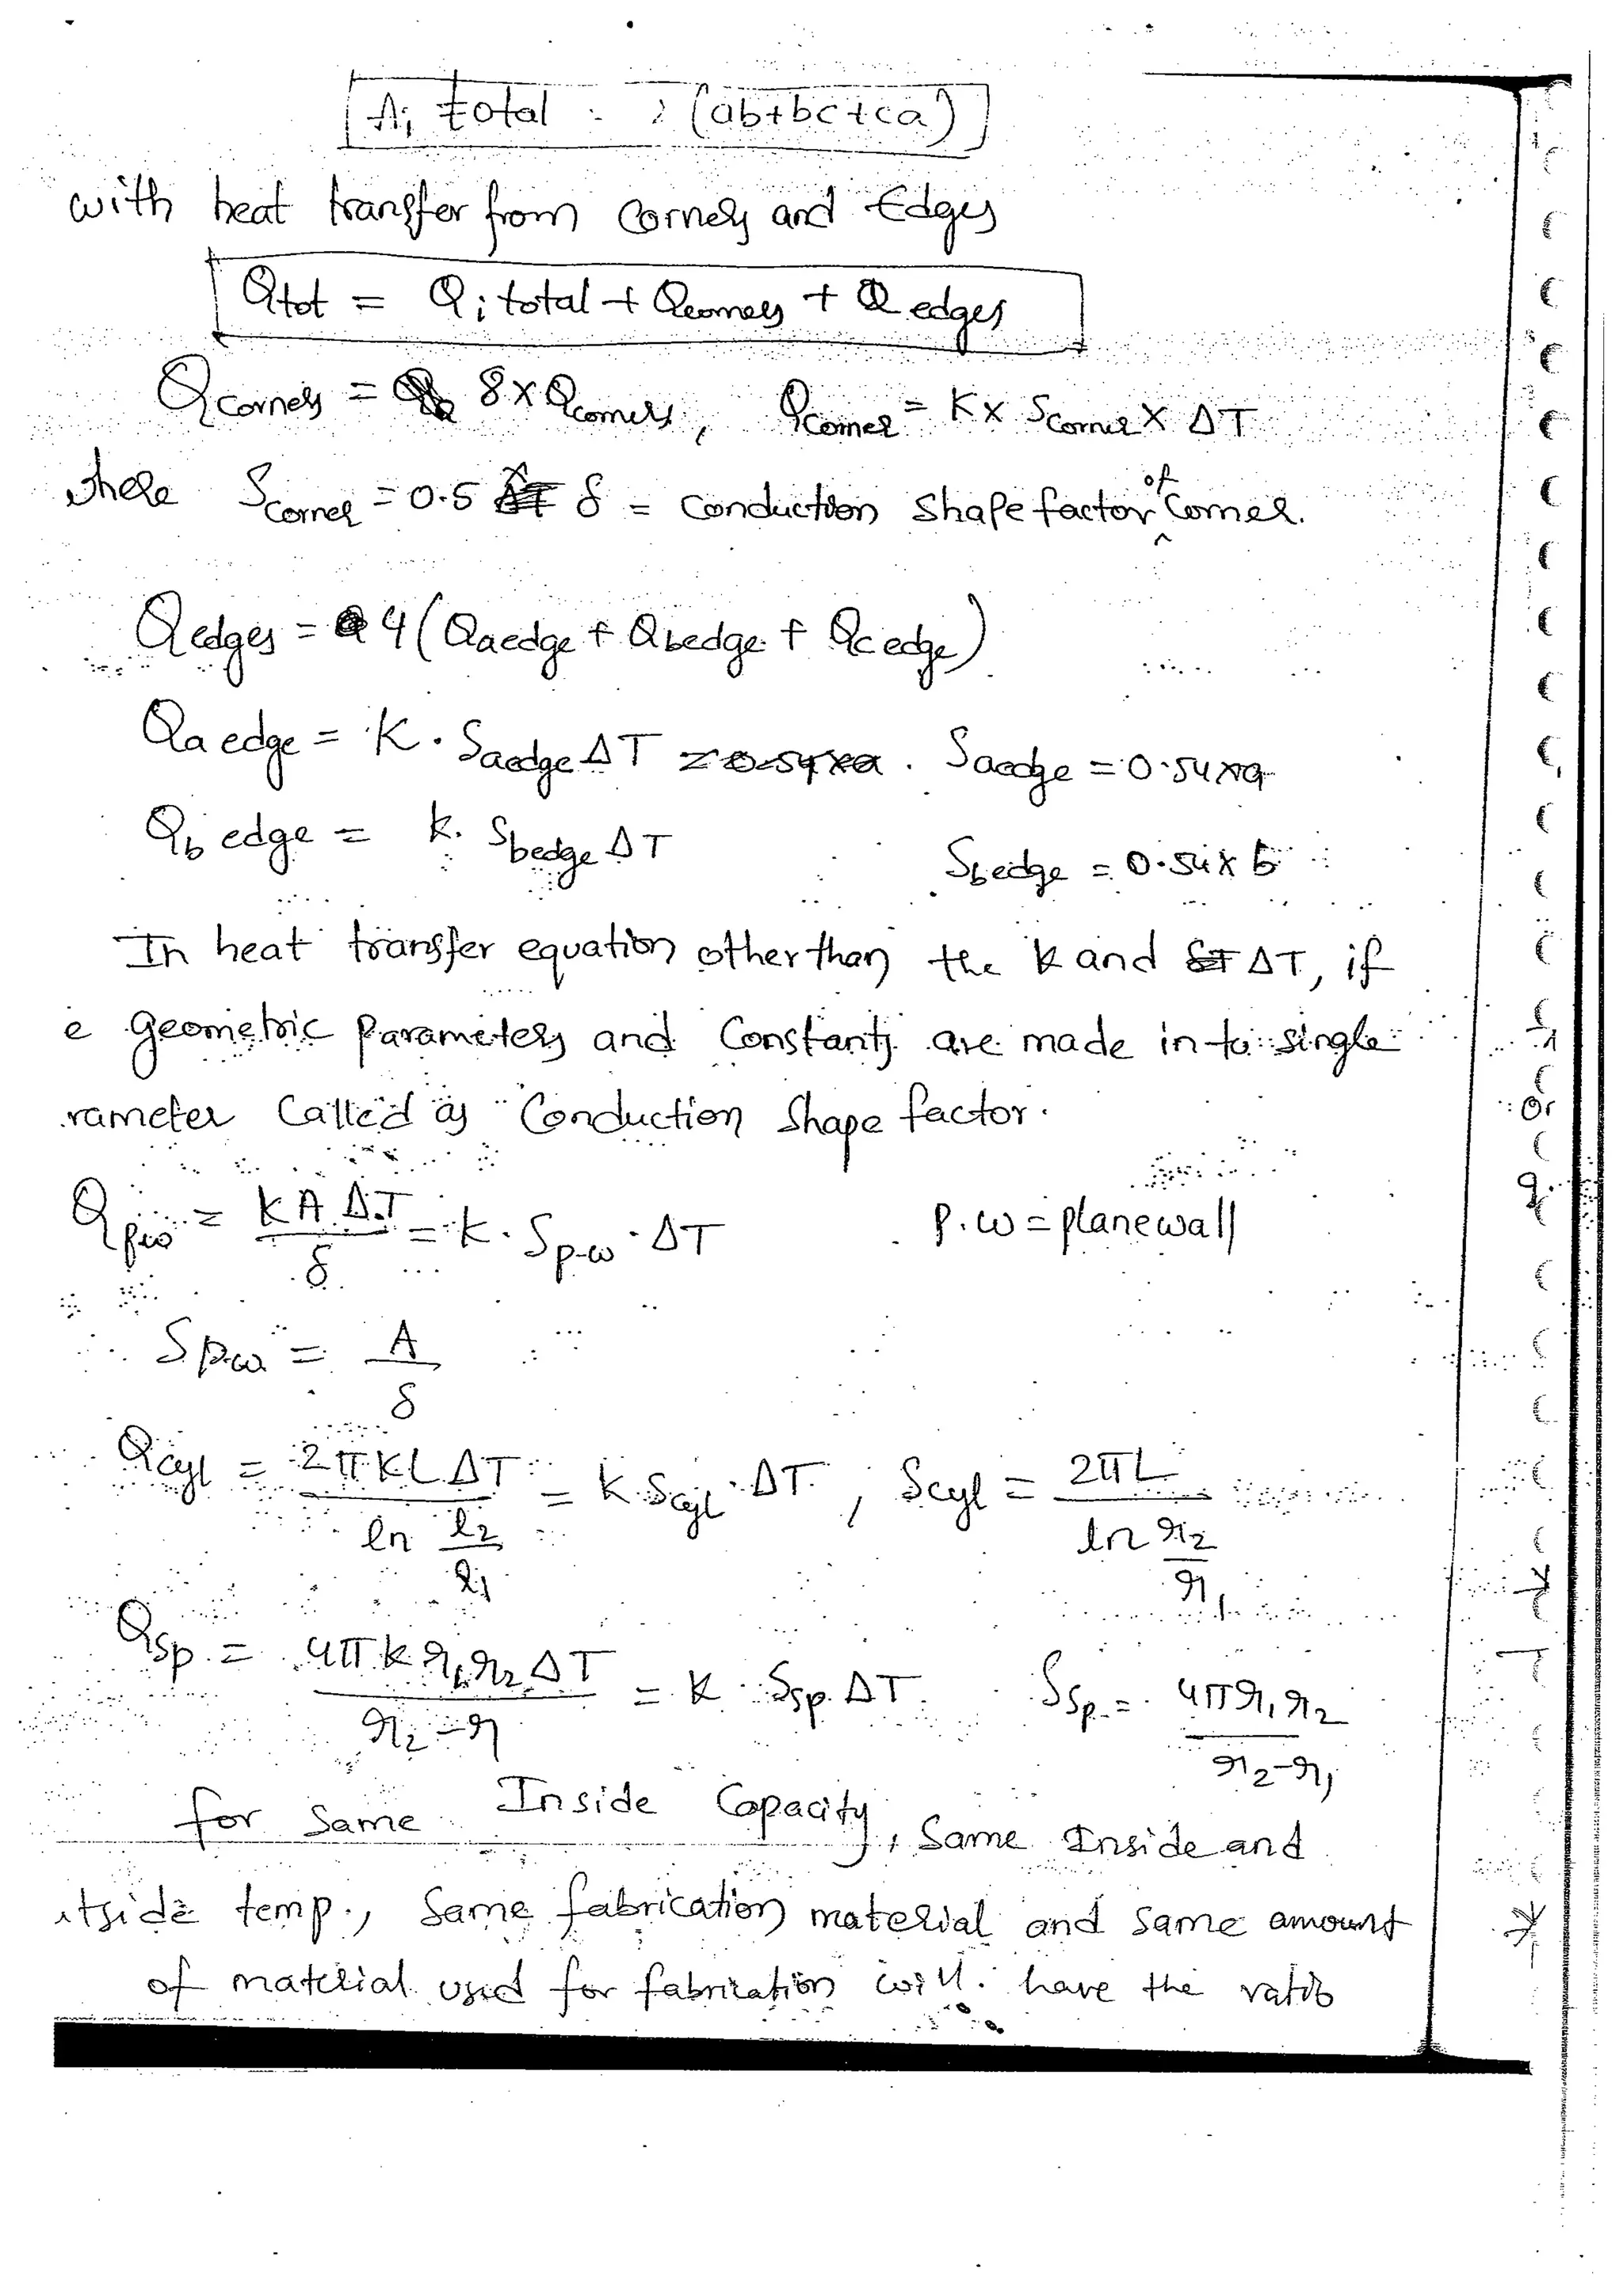 Ai total = 2 (ab+bc+ca)
with heat transfer from corners and Edges
Qtot = Qi total + Qcorners + Q edges
Qcorners = 8 x Qcorners, Qcorner = K x Scorner x ΔT
where Scorner = 0.5 x δ = conduction shape factor of corner.
Qedges = 4 (Qaedge + Qbedge + Qcedge)
Qa edge = K. Saedge ΔT = 0.54xa . Saedge = 0.54xa
Qb edge = k. Sbedge ΔT Sbedge = 0.54 x b
In heat transfer equation other than the k and ΔT, if
e geometric parameters and constants are made in to single
rameter called as conduction shape factor.
Qp.w = KAΔT/δ = k. Sp.w . ΔT P.w = plane wall
Sp.w = A/δ
Qcyl = 2πKLΔT / ln r2/r1 = K. Scyl . ΔT , Scyl = 2πL / ln r2/r1
Qsp = 4πk r1 r2 ΔT / r2-r1 = K Ssp. ΔT. Ssp = 4πr1 r2 / r2-r1
for Same Inside Capacity, Same Inside and
tside temp., Same fabrication material and same amount
of material used for fabrication will have the ratio
or
q.